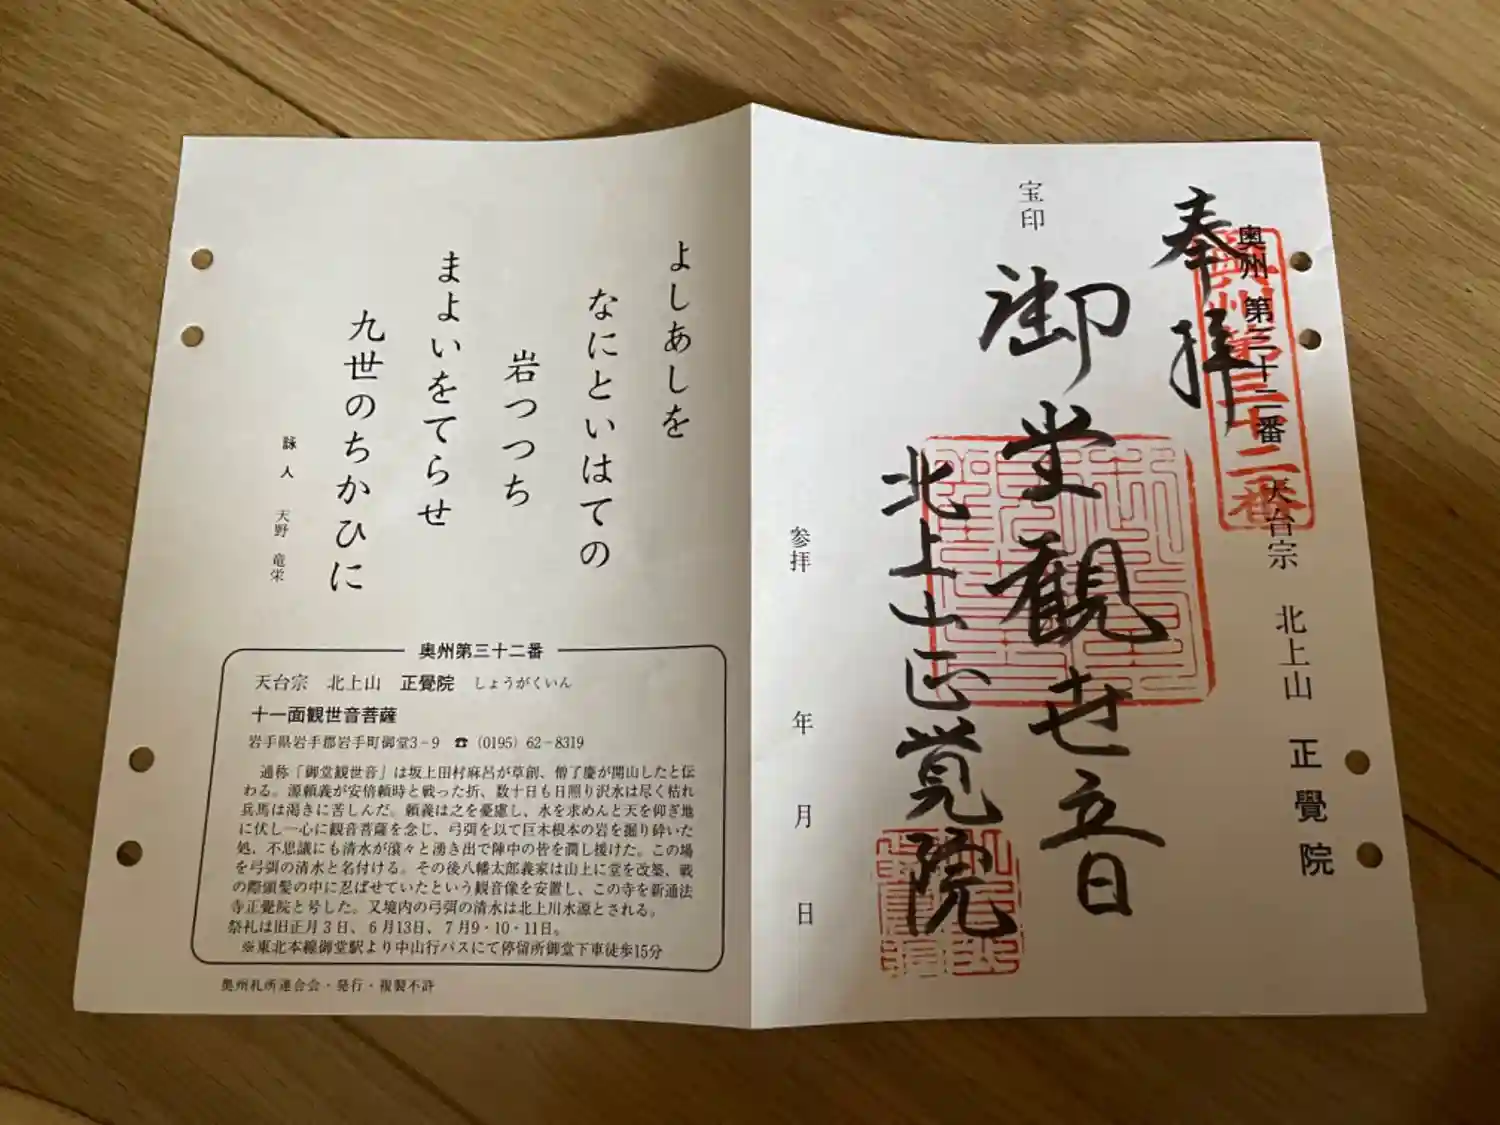 奥州 第三十二番 天台宗 北上山 正覺院
奥州第三十二番
奉拝
宝印
御堂観世音
北上山正覚院
参拝 年 月 日
よしあしを
なにといはての
岩つつち
まよいをてらせ
九世のちかひに
詠人 天野 竜栄
奥州第三十二番
天台宗 北上山 正覺院 しょうがくいん
十一面観世音菩薩
岩手県岩手郡岩手町御堂3-9 ☎(0195)62-8319
通称「御堂観世音」は坂上田村麻呂が草創、僧了慶が開山したと伝
わる。源頼義が安倍頼時と戦った折、数十日も日照り沢水は尽く枯れ
兵馬は渇きに苦しんだ。頼義は之を憂慮し、水を求めんと天を仰ぎ地
に伏し一心に観音菩薩を念じ、弓弭を以て巨木根本の岩を掘り砕いた
処、不思議にも清水が滾々と湧き出で陣中の皆を潤し援けた。この場
を弓弭の清水と名付ける。その後八幡太郎義家は山上に堂を改築、戦
の際頭髪の中に忍ばせていたという観音像を安置し、この寺を新通法
寺正覺院と号した。又境内の弓弭の清水は北上川水源とされる。
祭礼は旧正月3日、6月13日、7月9・10・11日。
※東北本線御堂駅より中山行バスにて停留所御堂下車徒歩15分
奥州札所連合会・発行・複製不許